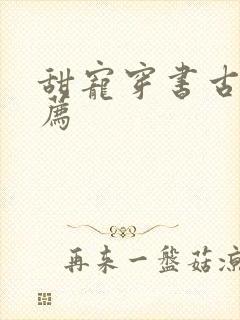 甜寵穿書古
薦
再来一盤菇凉